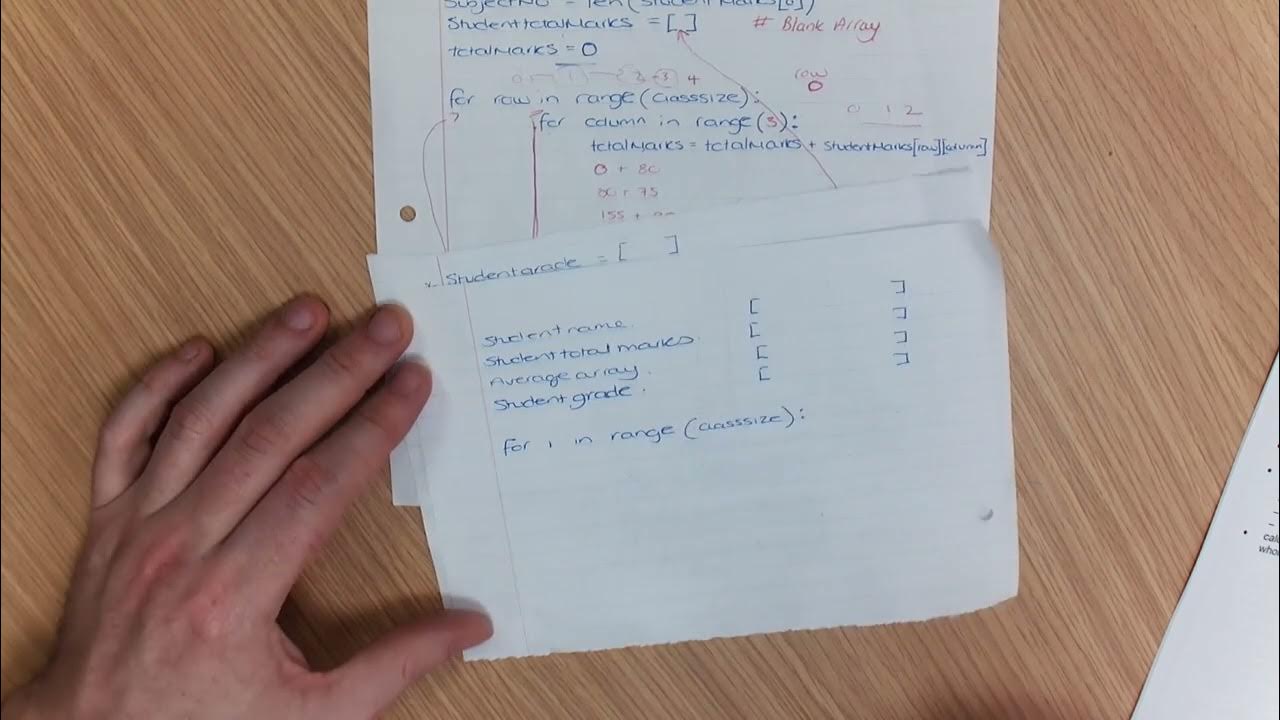 SubjectNo = len(StudentMarks[0])
StudenttotalMarks = [ ] # Blank Array
totalMarks = 0
0 1 2 3 4 row
for row in range(classsize): 0
0 1 2
for column in range(3):
totalMarks = totalMarks + studentMarks[row][column]
0 + 80
80 + 75
155 +
Studentgrade = [ ]
Student name. [ ]
Student total marks. [ ]
Average array. [ ]
Student grade. [ ]
for i in range (classsize):
cal
who